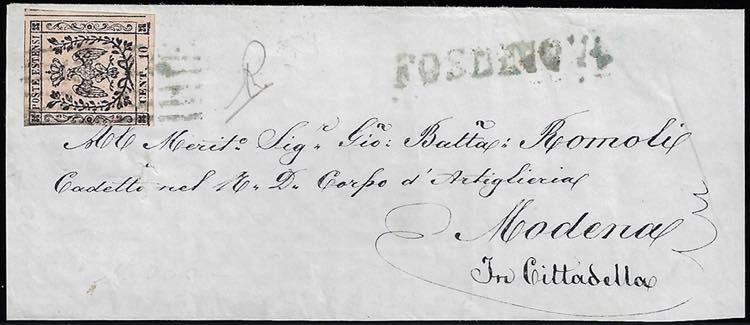 POSTE ESTENSI
CENT. 10
R
FOSDINOVO
All Merito. Sigr. Gio: Batta: Romoli
Cadetto nel R. D. Corpo d'Artiglieria
Modena
In Cittadella